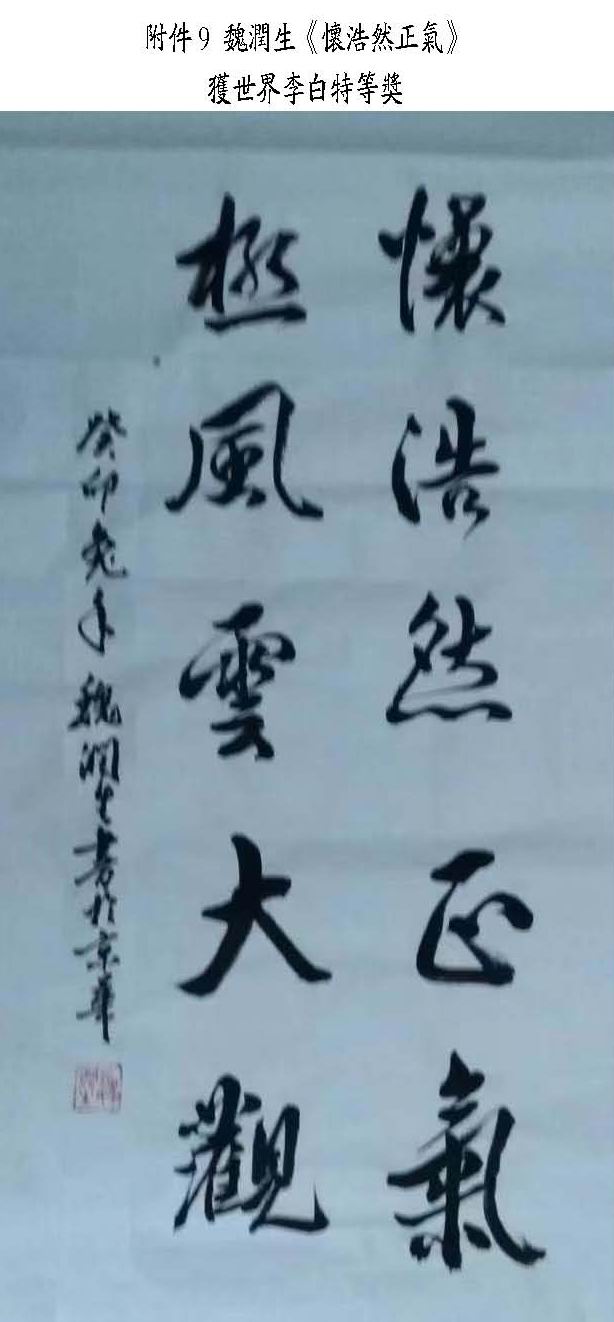 附件9 魏潤生《懷浩然正氣》
獲世界李白特等獎
懷浩然正氣
極風雲大觀
癸卯兔年 魏潤生書於京華